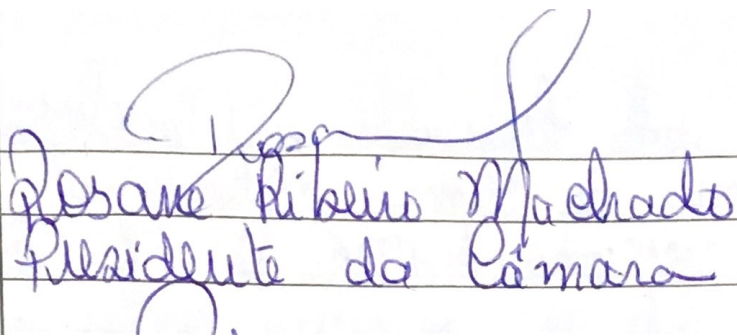 Rosane Ribeiro Machado
Presidente da Câmara